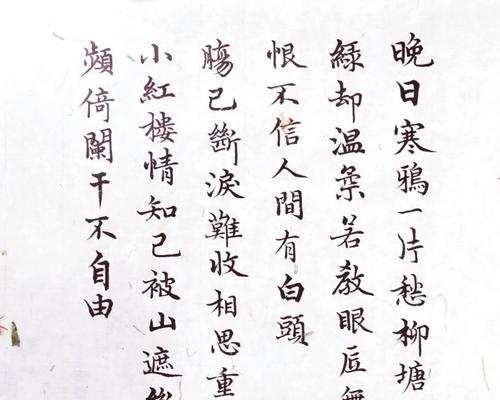 晚日寒鴉一片愁柳塘
緑却温柔若教眼底無
恨不信人間有白頭
膓已斷淚難收相思重
小紅樓情知已被山遮
頻倚闌干不自由